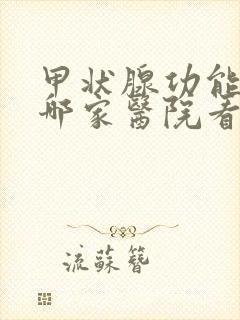 甲状腺功能
哪家醫院看
流蘇簪